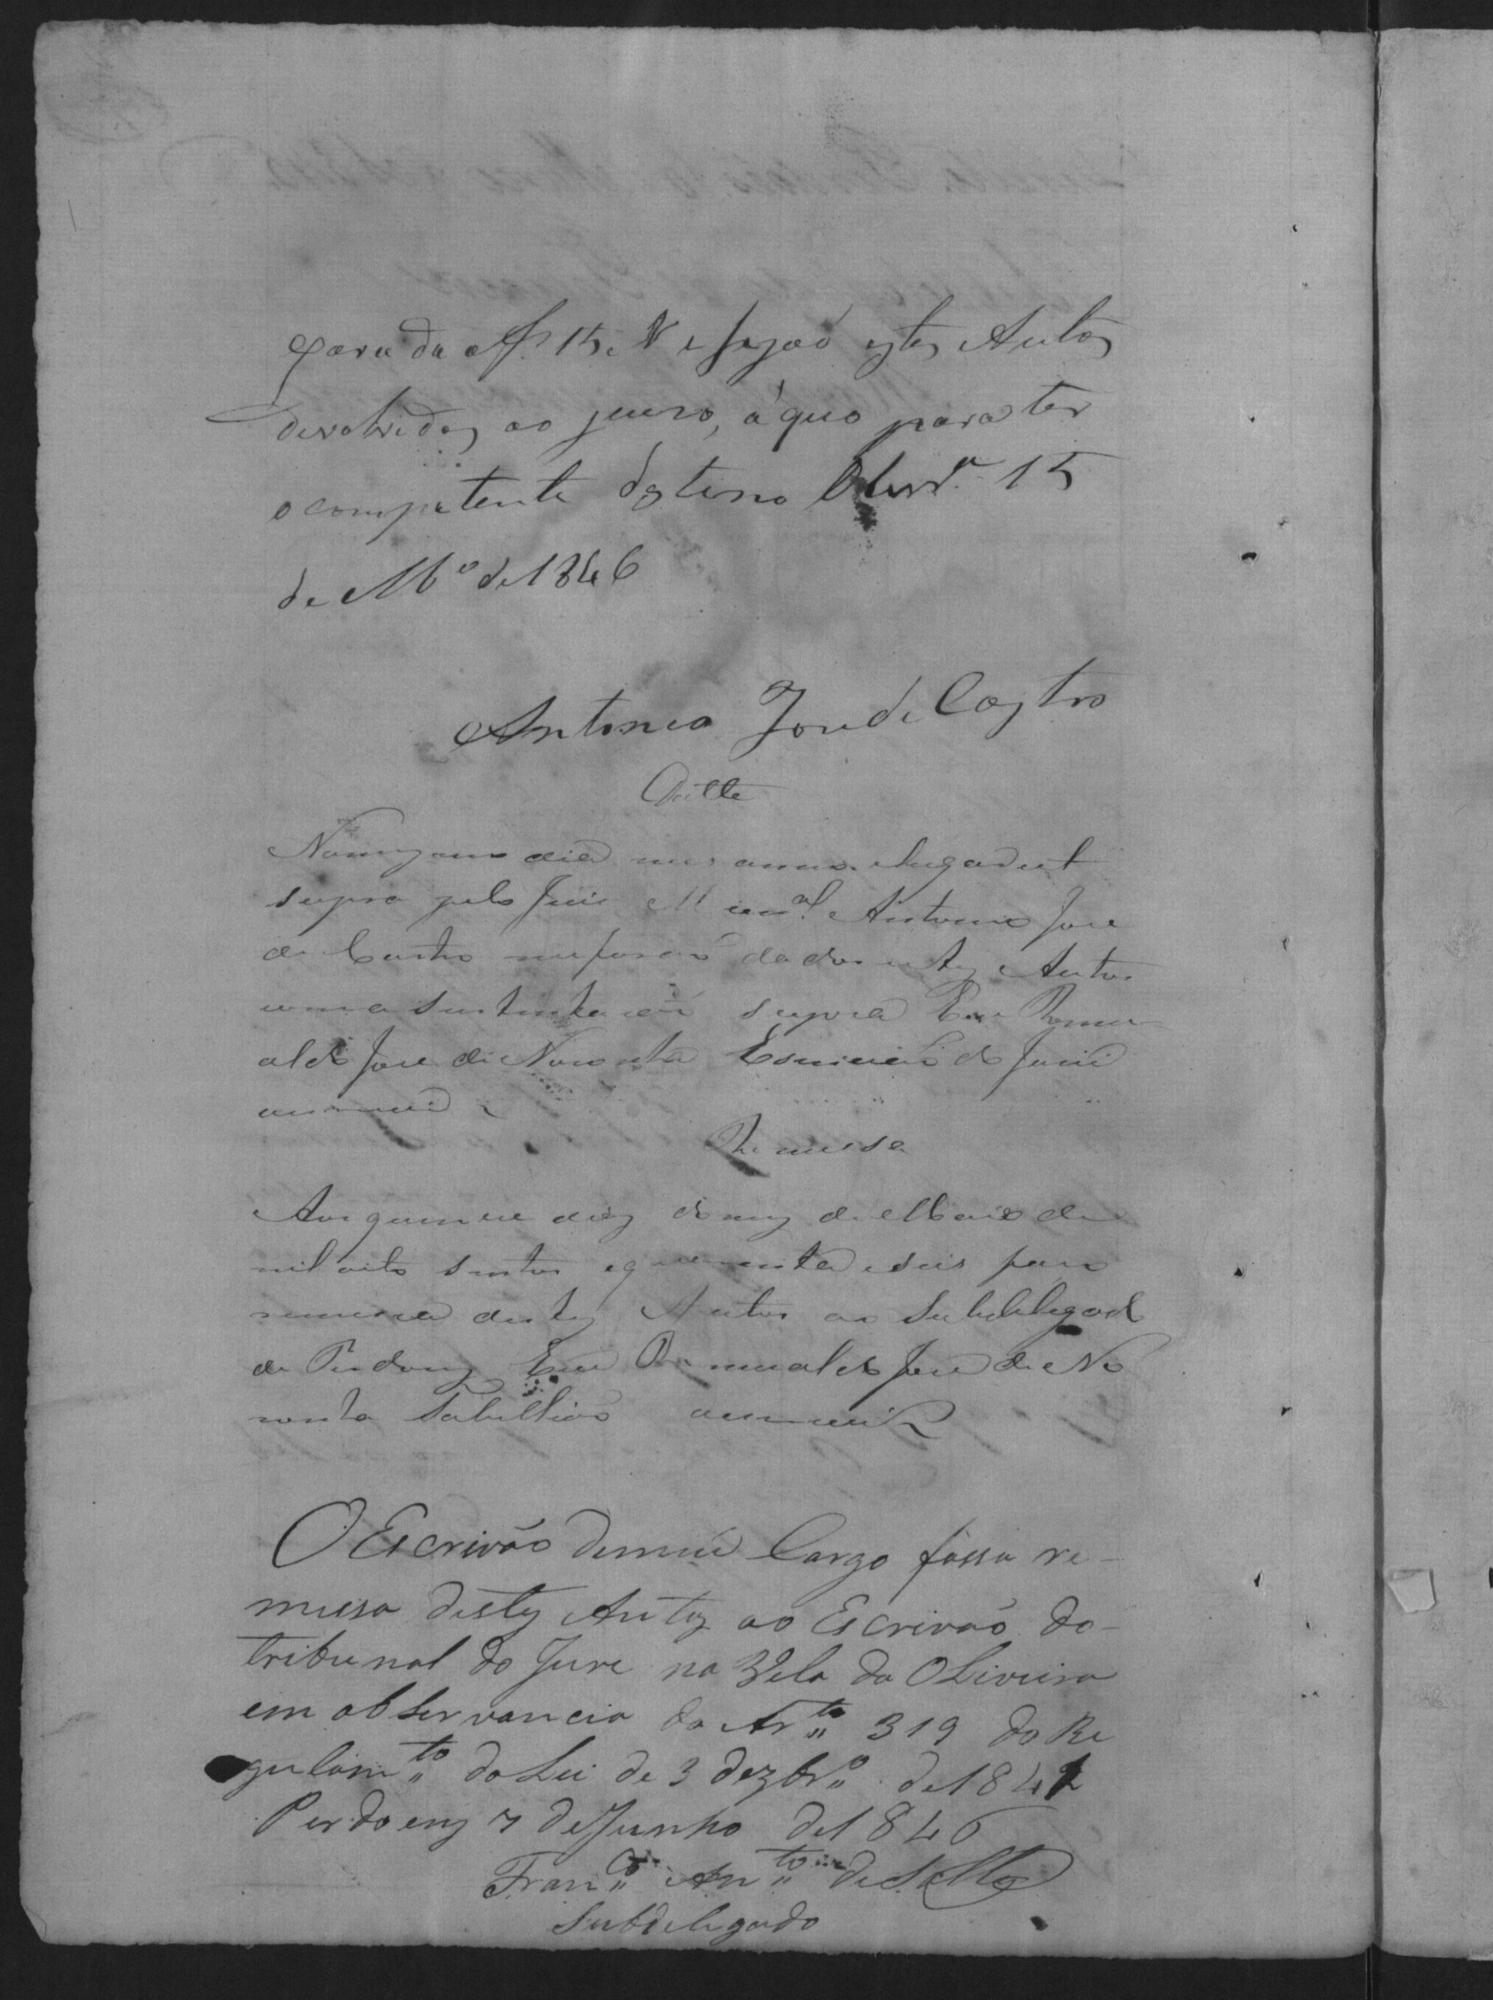 para da f. 15 V e sejaó estes Autos
devolvidos ao juizo, á quo para ter
o competente destino Olivr.ª 15
de M.º de 1846
Antonio Jose de Castro
Datta
No mesmo dia mes anno e lugar ut
supra pelo Juis Munc.al Antonio Jose
de Castro me foraó dados estes Autos
com a sustentacaó supra Eu Romu
aldo Jose de Noronha Escrivaó do Juri
escrevi
Remessa
Aos quinze dias do mes de Maio de
mil oito sentos e quarenta e seis faco
remessa destes Autos ao Subdelegado
de Perdoens Eu Romualdo Jose de No
ronha Tabelliaó escrevi
O Escrivão de meu Cargo fassa re-
messa destes Autos ao Escrivão do
tribunal do Jure na Vela da Oliveira
em observancia do Ar.to 319 do Re
gulam.to da Lei de 3 dezbr.o de 1841
Perdoens 7 de Junho de 1846
Fran.co An.to de
Subdelegado